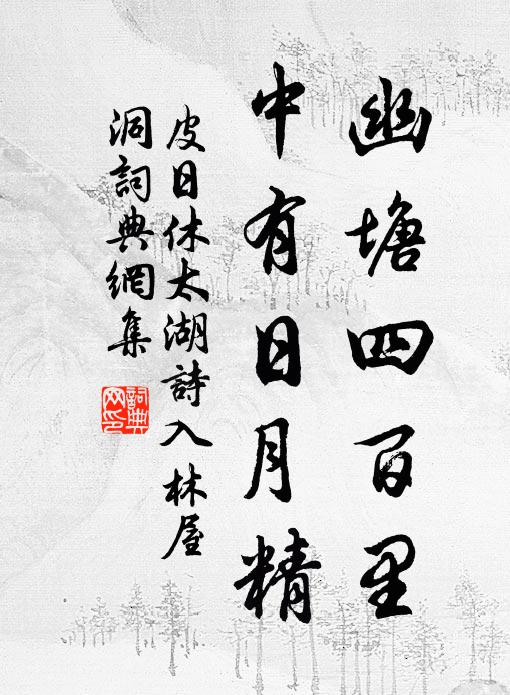 幽塘四百里
中有日月精
皮日休太湖詩入林屋
洞詞典網集
詞典網印